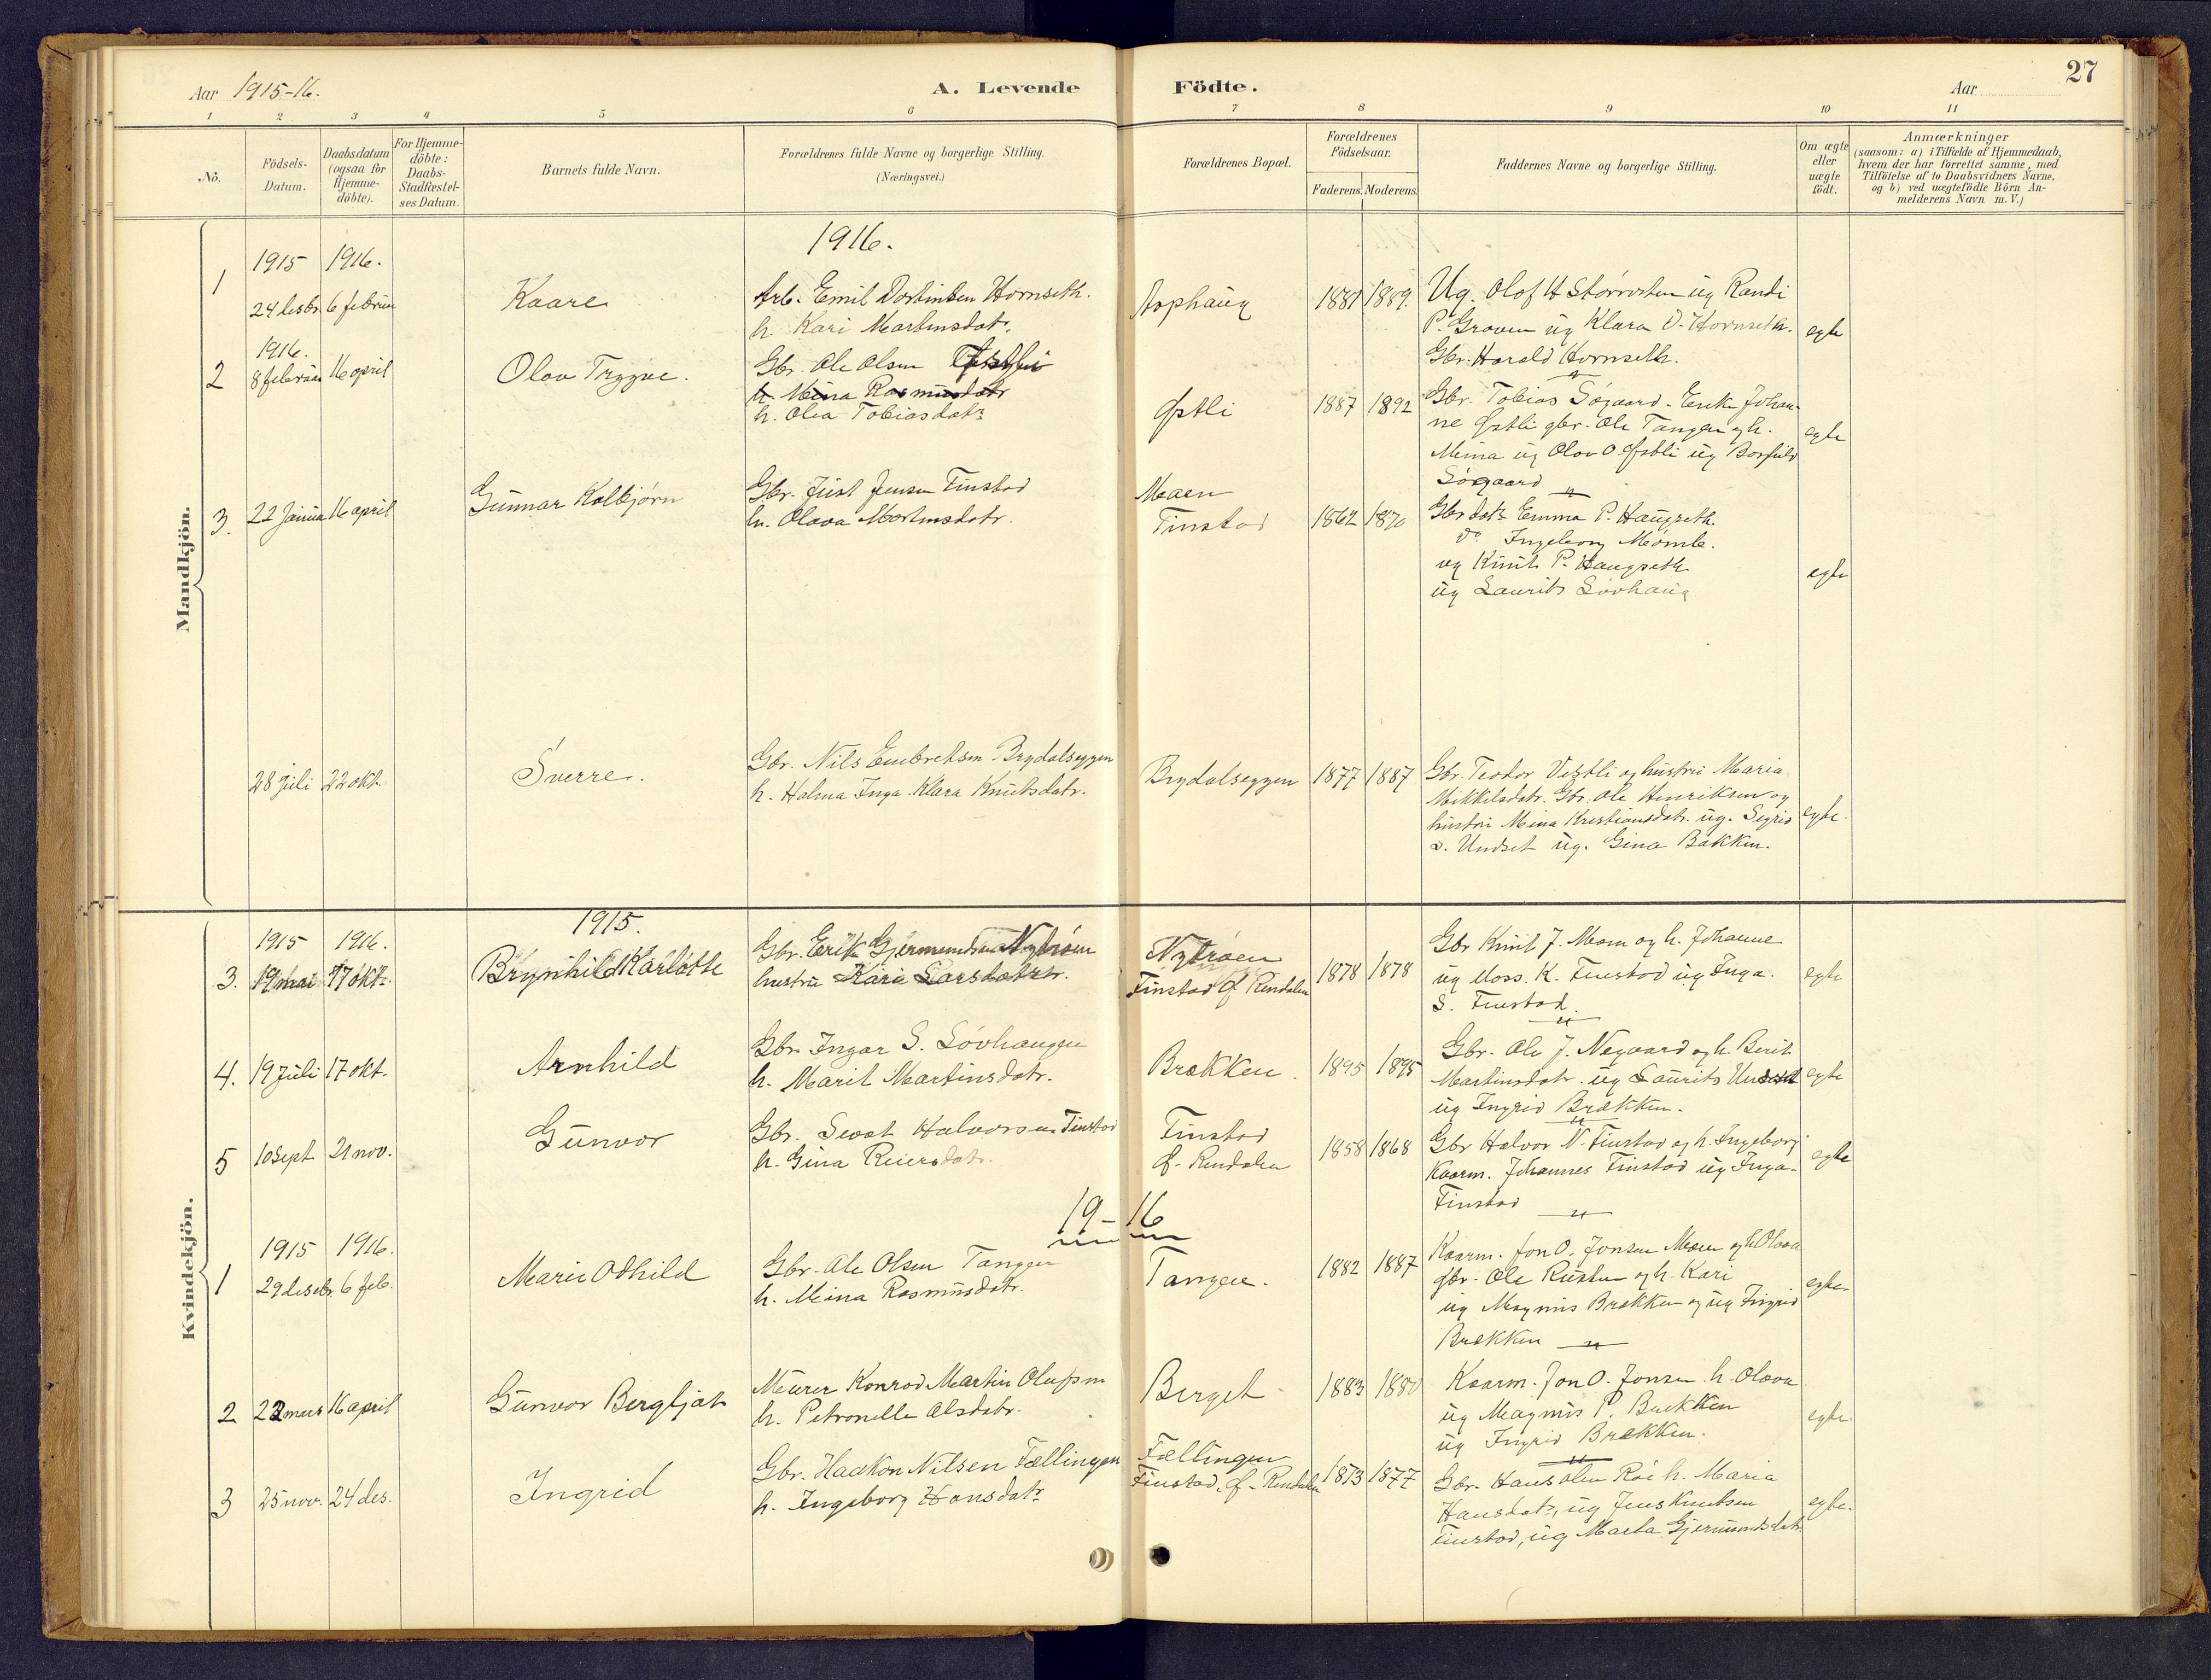 27
Aar 1915-16.
A. Levende Födte.
Aar
1 2 3 4 5 6 7 8 9 10 11
No.
Födsels-
Datum.
Daabsdatum
(ogsaa for
Hjemme-
döbte).
For Hjemme-
döbte:
Daabs-
Stadfæstel-
ses Datum.
Barnets fulde Navn.
Forældrenes fulde Navne og borgerlige Stilling.
(Næringsvei.)
Forældrenes Bopæl.
Forældrenes
Födselsaar.
Faderens. Moderens.
Faddernes Navne og borgerlige Stilling.
Om ægte
eller
uægte
födt.
Anmærkninger
(saasom: a) i Tilfælde af Hjemmedaab,
hvem der har forrettet samme, med
Tilföielse af to Daabsvidners Navne,
og b) ved uægtefödte Börn An-
melderens Navn m. V.)
Mandkjön.
1916.
1915 1916.
1
24 desbr. 6 februar
Kaare
Arb. Emil Hornseth.
h. Kari Martinsdatr.
Aaphaug
1881 1889.
Ug. Olof H ug Randi
P. Groven ug Klara O. Hornseth.
Gbr. Harald Hornseth.
egte
1916.
2 8 februar 16 april
Olav Tryggve.
Gbr. Ole Olsen
h. Meina Rasmusdatr
h. Olea Tobiasdatr
Östli
1887 1892
Gbr. Tobias Sögaard. Enke Johan-
ne Östli gbr. Ole Tangen og h.
Meina ug Olav O. Östli ug Borghild
Sögaard
egte
3. 22 Januar 16 april
Gunnar Kolbjörn
Gbr. Just Jensen Finstad
h. Olava Martinsdatr.
Moen
Finstad
1862 1870
Gbr datr Emma P. Haugseth.
do Ingeborg
ug Knut P. Haugseth
ug Laurits Lövhaug
egte
28 juli 22 okt.
Sverre.
Gbr. Nils Embretsen Brydalseggen
h. Halma Inga Klara Knutsdatr.
Brydalseggen
1877 1887
Gbr. Teodor og hustru Maria
Mikkelsdatr. Gbr. Ole Henriksen og
hustru Meina Kristiansdatr. ug. Sigrid
Undset ug. Gina Bakken.
egte.
Kvindekjön.
1915.
1915 1916.
3. 19 mai 17 okt.
Brynhild Karlotte
Gbr. Erik Gjermundsen Nytröen
hustru Kari Larsdatr.
Nytröen
Finstad Ö. Rendalen
1878 1878
Gbr Knut J. Moen og h. Johanne
ug K. Finstad ug Inga
S. Finstad.
egte
4. 19 Juli 17 okt.
Arnhild
Gbr. Ingar S. Lövhaugen
h. Marit Martinsdatr.
Brækken
1895 1895
Gbr. Ole J. Nygaard og h. Berit
Martinsdatr. ug Laurits Undset
ug Ingrid Brækken.
egte
5 10 sept 21 nov.
Gunvor
Gbr. Sevat Halvorsen Finstad
h. Gina Reiersdatr.
Finstad
Ö. Rendalen
1858 1868
Gbr Halvor N. Finstad og h. Ingeborg
Kaarm. Johannes Finstad ug Inga
Finstad
egte
19-16
1915 1916.
1 29 desebr. 6 feb.
Marie Odhild
Gbr. Ole Olsen Tangen
h. Meina Rasmusdatr.
Tangen.
1882 1887
Kaarm. Jon O. Jonsen Moen og h Olava
gbr. Ole Rusten og h. Kari
ug Magnus Brækken og ug Ingrid
Brækken
egte
2 22 mars 16 april
Gunvor Bergljot
Murer Konrad Martin Olufsen
h. Petronelle Olsdatr.
Berget
1883 1880
Kaarm. Jon O. Jonsen h. Olava
ug Magnus P. Brækken
ug Ingrid Brækken.
egte.
3 25 nov. 24 des.
Ingrid
Gbr. Haakon Nilsen Fællingen
h. Ingeborg Hansdatr
Fællingen
Finstad, Ö. Rendalen
1873 1877
Gbr. Hans Olsen h. Maria
Hansdatr, ug Jens Knutsen
Finstad, ug Marta Gjermundsdatr.
egte.